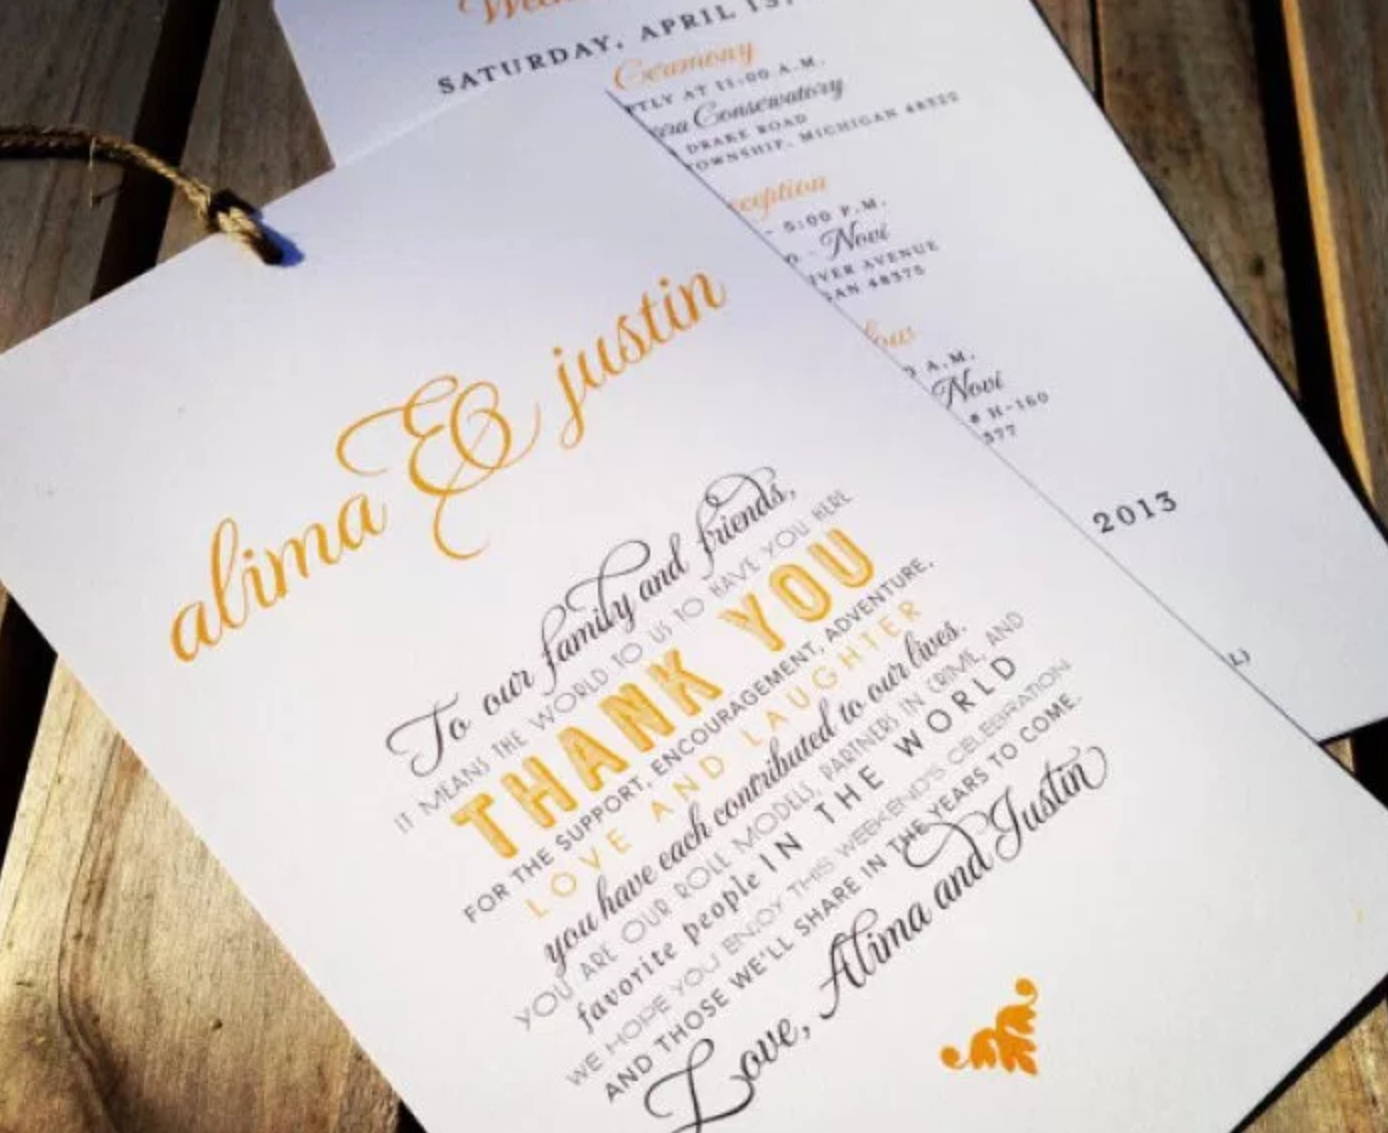 SATURDAY, APRIL 13,
Ceremony
AT 11:00 A.M.
Conservatory
DRAKE ROAD
TOWNSHIP, MICHIGAN 48322
- 5:00 P.M.
- Novi
AVENUE
48375
A.M.
Novi
# H-160
2013
alima & justin
To our family and friends,
IT MEANS THE WORLD TO US TO HAVE YOU HERE
THANK YOU
FOR THE SUPPORT, ENCOURAGEMENT, ADVENTURE,
LOVE AND LAUGHTER
you have each contributed to our lives.
YOU ARE OUR ROLE MODELS, PARTNERS IN CRIME, AND
favorite people IN THE WORLD
WE HOPE YOU ENJOY THIS WEEKEND'S CELEBRATION
AND THOSE WE'LL SHARE IN THE YEARS TO COME.
Love, Alima and Justin